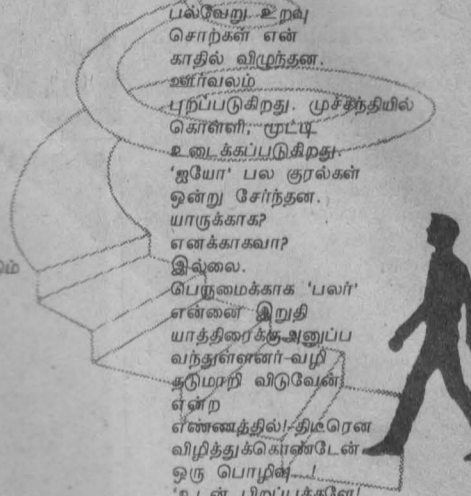 பல்வேறு உறவு
சொற்கள் என்
காதில் விழுந்தன.
ஊர்வலம்
புறப்படுகிறது. முச்சந்தியில்
கொள்ளி, மூட்டி
உடைக்கப்படுகிறது.
'ஐயோ' பல குரல்கள்
ஒன்று சேர்ந்தன.
யாருக்காக?
எனக்காகவா?
இல்லை.
பெருமைக்காக 'பலர்'
என்னை இறுதி
யாத்திரைக்குஅனுப்ப
வந்துள்ளனர்-வழி
தடுமாறி விடுவேன்
என்ற
எண்ணத்தில்!-திடீரென
விழித்துக்கொண்டேன்-
ஒரு
'உடன் பிறப்புக்களே!